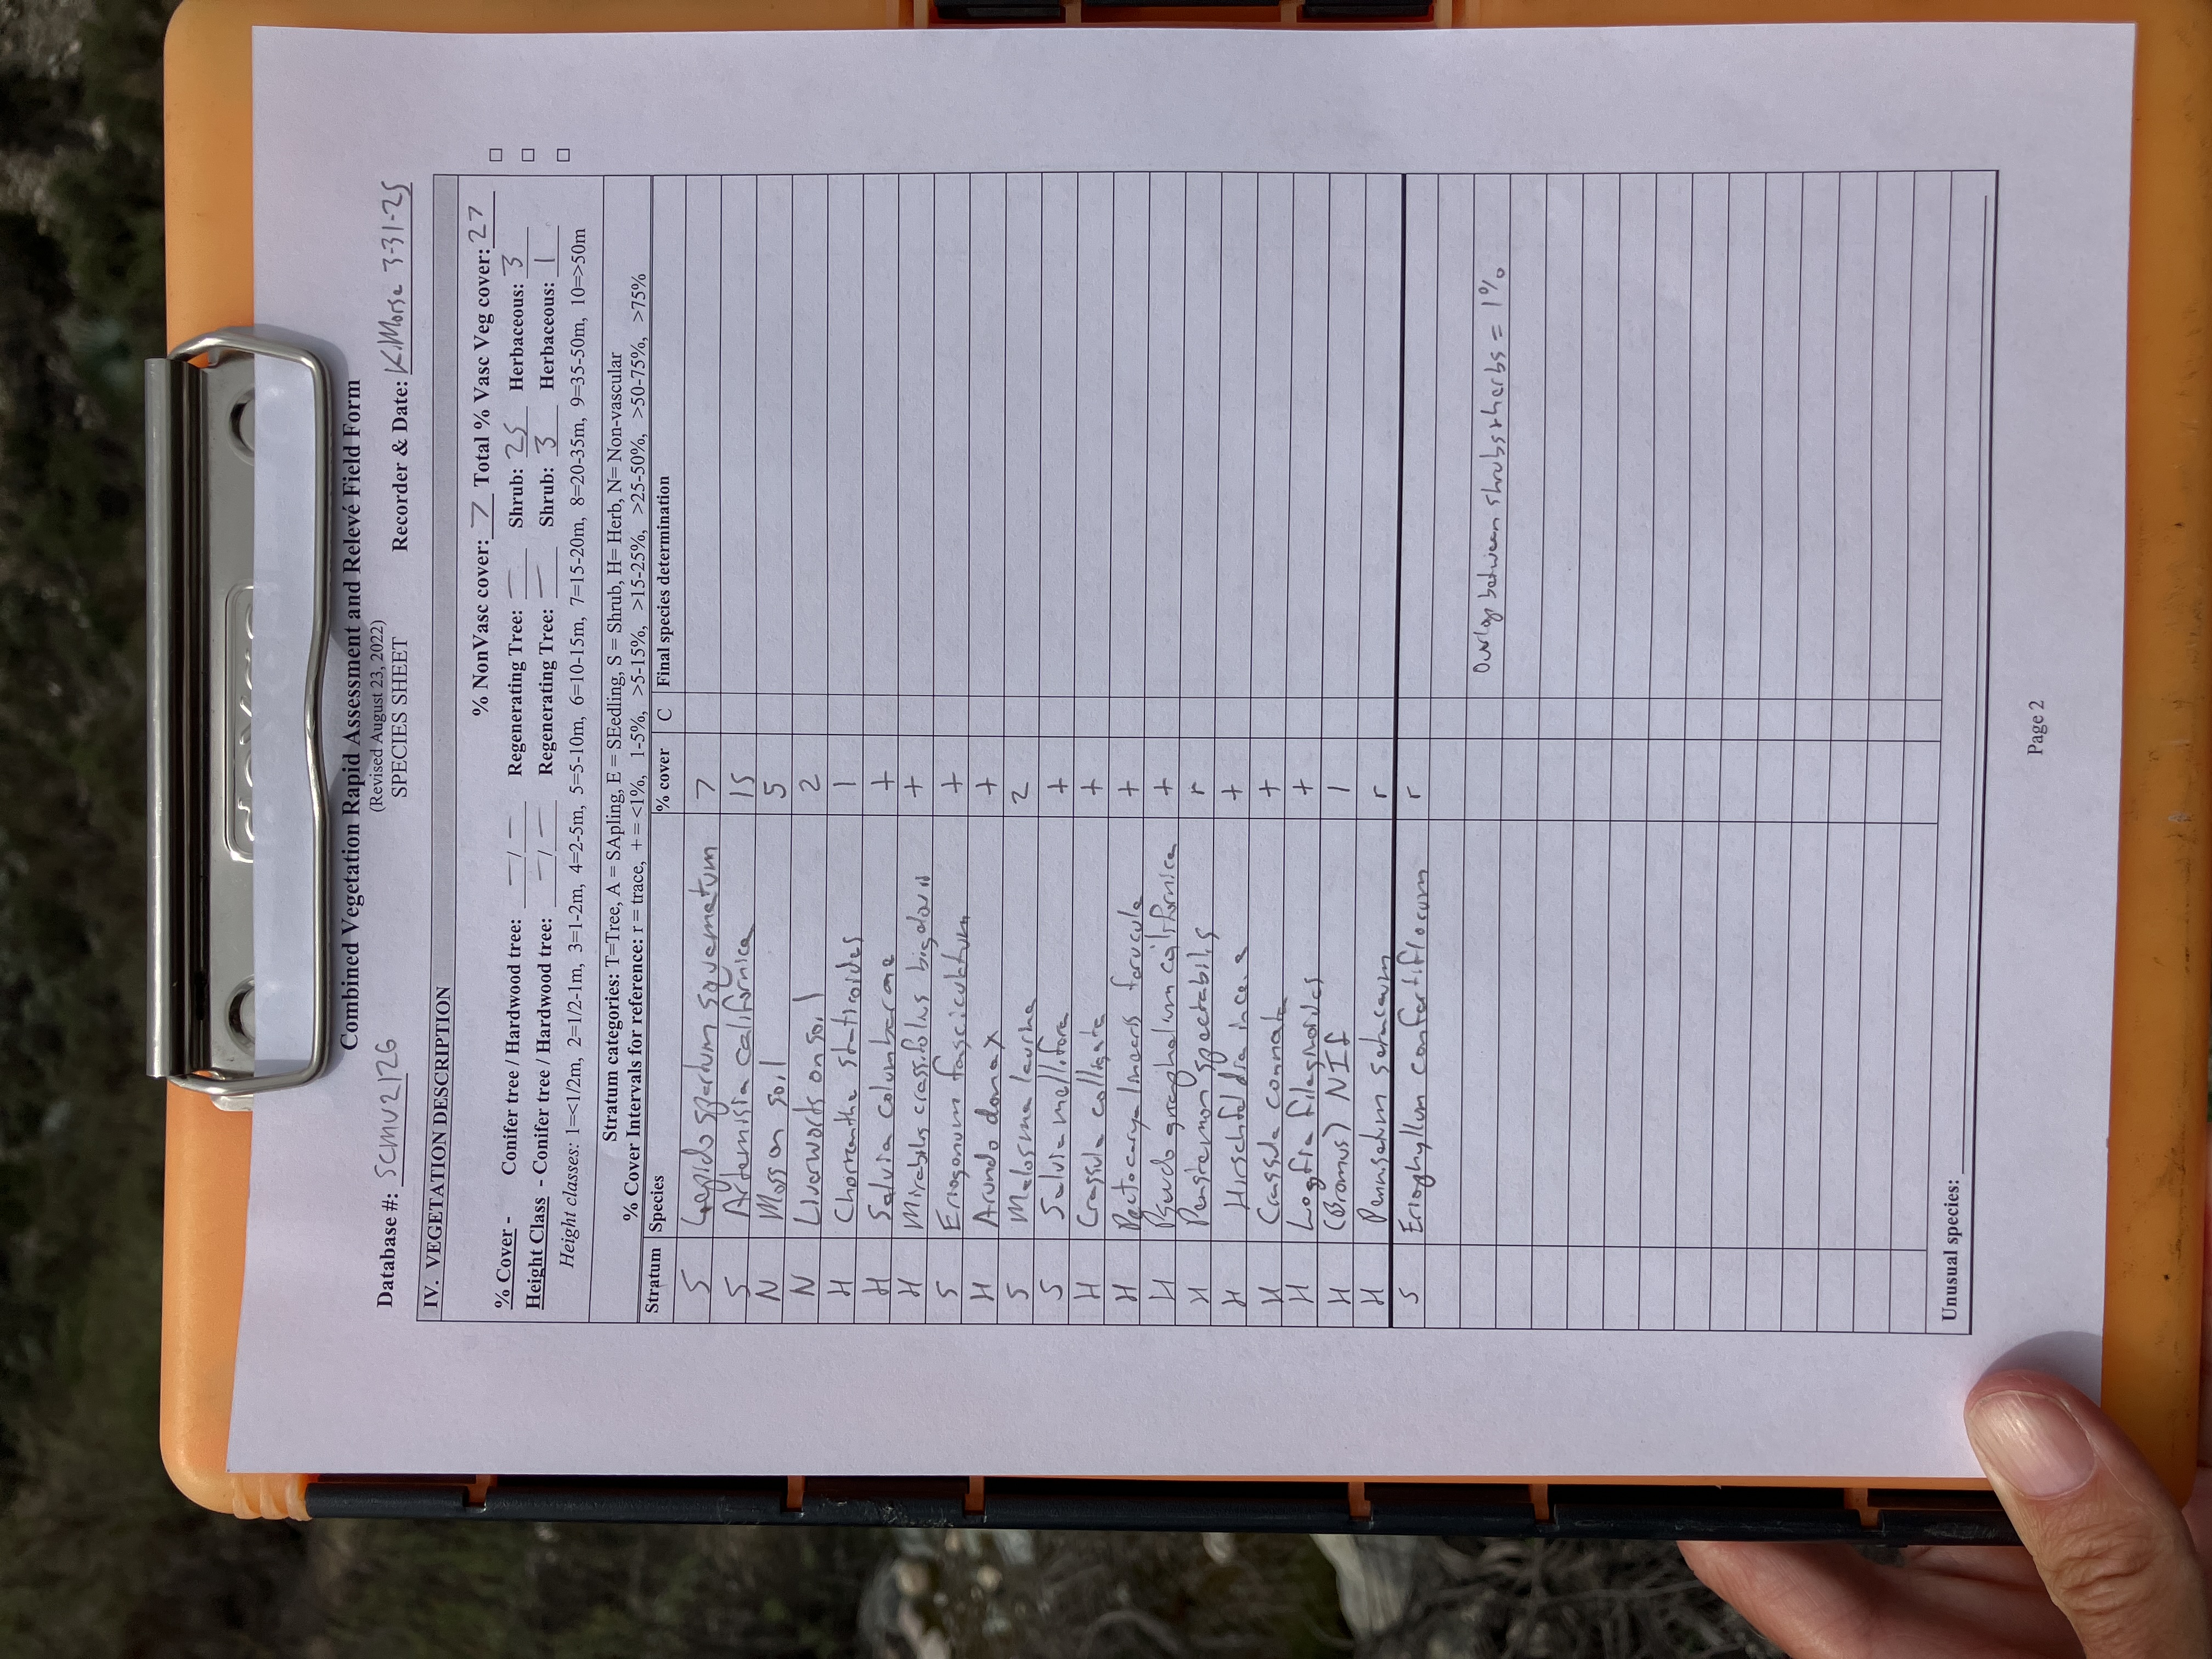 Combined Vegetation Rapid Assessment and Relevé Field Form
(Revised August 23, 2022)
SPECIES SHEET
Database #: SCMV2126 Recorder & Date: K.Morse 3-31-25
IV. VEGETATION DESCRIPTION
% NonVasc cover: 7 Total % Vasc Veg cover: 27
% Cover - Conifer tree / Hardwood tree: — / — Regenerating Tree: — Shrub: 25 Herbaceous: 3
Height Class - Conifer tree / Hardwood tree: — / — Regenerating Tree: — Shrub: 3 Herbaceous: 1
Height classes: 1=<1/2m, 2=1/2-1m, 3=1-2m, 4=2-5m, 5=5-10m, 6=10-15m, 7=15-20m, 8=20-35m, 9=35-50m, 10=>50m
Stratum categories: T=Tree, A = SApling, E = SEedling, S = Shrub, H= Herb, N= Non-vascular
% Cover Intervals for reference: r = trace, + = <1%, 1-5%, >5-15%, >15-25%, >25-50%, >50-75%, >75%
Stratum Species % cover C Final species determination
S Lepidospartum squamatum 7
S Artemisia californica 15
N Moss on soil 5
N Liverworts on soil 2
H Chorizanthe staticoides 1
H Salvia columbariae +
H Mirabilis crassifolius bigelovii +
S Eriogonum fasciculatum +
H Arundo donax +
S Malosma laurina 2
S Salvia mellifera +
H Crassula colligata +
H Pectocarya linearis ferocula +
H Pseudognaphalium californica +
H Penstemon spectabilis r
H Hirschfeldia incana +
H Crassula connata +
H Logfia filagnoides +
H (Bromus) NIF 1
H Pennisetum setaceum r
S Eriophyllum confertiflorum r
Overlap between shrubs & herbs = 1%
Unusual species:
Page 2